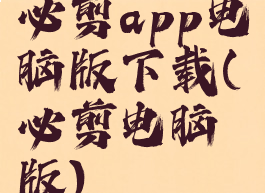 必剪app电
脑版下载(
必剪电脑
版)